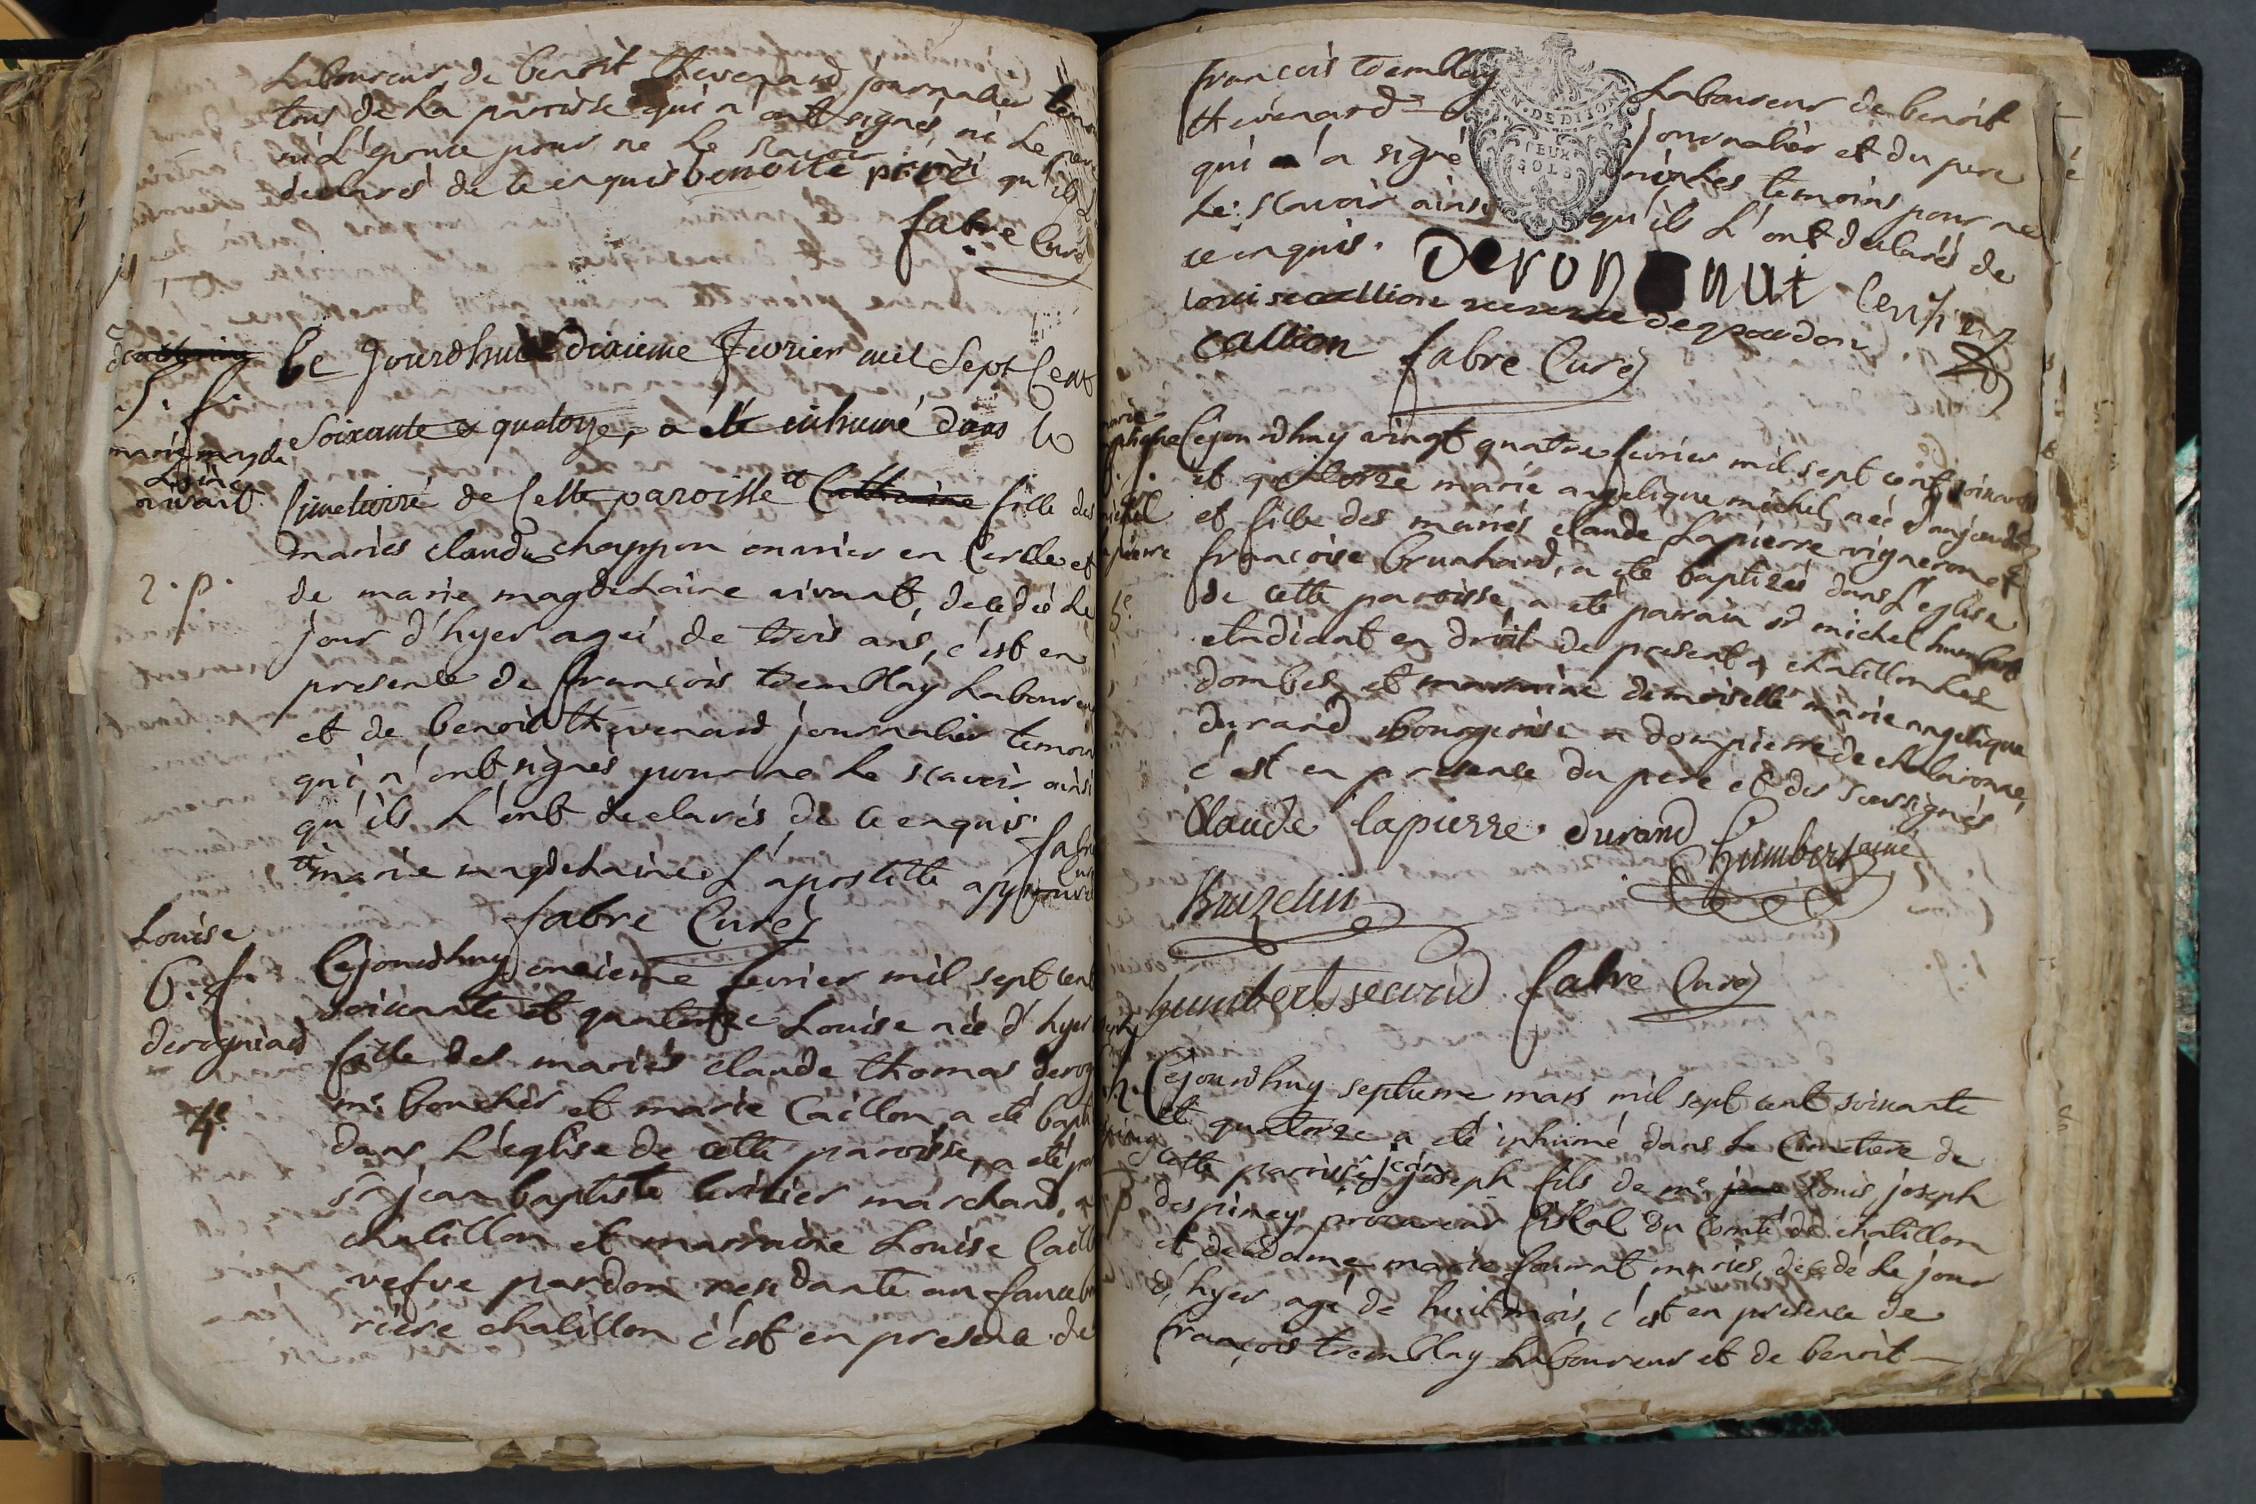 Laboureur de benoit thevenard journalier
tous de la paroisse qui n'ont signés, ni le
ni L'epouse pour ne le scavoir
declarés de ce enquis benoite qu'ils
fabre Curé
Le Jourdhui dixieme Fevrier mil Sept Cent
Soixante & quatorze, a été inhumé dans le
Cimetierre de Cette paroisse Catherine fille des
mariés claude chappon ouvrier en Cercle et
de marie magdelaine vivant, decedéé le
jour d'hyer ageé de trois ans, c'est en
presence de francois tremblay Laboureur
et de benoit thevenard journalier temoin
qui n'ont signés pour ne le scavoir ainsi
qu'ils L'ont declarés de ce enquis. fabre Curé
marie magdelaine L'apostille approuvée
fabre Curé
marie magde
Laine
vivant
2. p.
Louise
6. f.
derogniard
4e.
Cejourdhuy onzieme fevrier mil sept cent
soixante et quatorze Louise née d'hyer
fille des mariés claude thomas
me. boucher et marie Caillon, a eté
dans L'eglise de cette paroisse, a eté
Sr. jean baptiste marchand, a
chatillon et marraine Louise
vefve pardon residante au
riere chatillon c'est en presence de
francois tremblay Laboureur de benoit
thévenard journalier et du pere
qui n'a signé temoins pour ne
Le scavoir ainsi qu'ils L'ont declarés de
ce enquis.
louise callion veuve de pardon
callion fabre Curé
EN. DE DIJON
DEUX
SOLS
michel
Lapierre
5e.
Cejourdhuy vingt quatre fevrier mil sept cent soixante
et quatorze marie angelique michel née d'aujourdhuy
et fille des mariés claude Lapierre vigneron et
francoise brunhard, a ete baptizéé dans L'eglise
de cette paroisse, a ete parrain Sr. michel humbert
etudiant en droit de present a chatillon Les
dombes et marraine demoiselle marie angelique
durand bourgeoise a dompierre de chalaronne,
c'est en presence du pere et des soussignés
Claude lapierre. durand humbert ainé
Bruzelin
humbert second fabre Curé
Cejourdhuy septieme mars mil sept cent soixante
et quatorze a eté inhumé dans Le Cimetiere de
cette paroisse jean joseph fils de me. jean Louis joseph
despiney procureur fiskal du Comté de chatillon
et de dame marie mariés, decedé Le jour
d'hyer agé de huit mois, c'est en presence de
françois tremblay Laboureur et de benoit